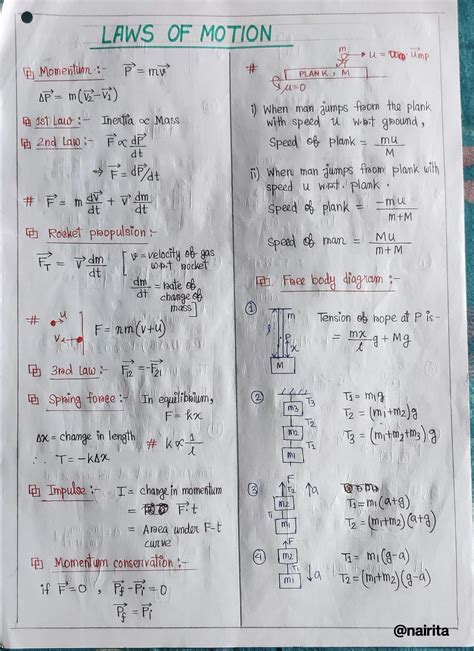 LAWS OF MOTION
Momentum :- P⃗ = mv⃗
ΔP⃗ = m(v⃗₂-v⃗₁)
1st Law :- Inertia ∝ Mass
2nd Law :- F⃗ ∝ dP⃗/dt
⇒ F⃗ = dP⃗/dt
# F⃗ = m dv⃗/dt + v⃗ dm/dt
Rocket propulsion :-
F⃗_T = v⃗ dm/dt [v = velocity of gas
w.r.t rocket
dm/dt = rate of
change of
mass]
# u v F = nm(v+u)
3rd Law :- F⃗₁₂ = -F⃗₂₁
Spring force :- In equilibrium,
F = kx
Δx = change in length # k ∝ 1/l
∴ T = -kΔx
Impulse :- I = change in momentum
= F⃗·t
= Area under F-t
curve
Momentum conservation :-
if F⃗ = 0, P⃗f - P⃗i = 0
P⃗f = P⃗i
# m u = u mp
PLANK, M
μ=0
i) When man jumps from the plank
with speed u w.r.t ground,
Speed of plank = mu/M
ii) When man jumps from plank with
speed u w.r.t. plank.
Speed of plank = -mu/m+M
Speed of man = Mu/m+M
Free body diagram :-
① l m P x M Tension of rope at P is-
= mx/l g + Mg
② T₃ m₃ T₂ m₂ T₁ m₁ T₁ = m₁g
T₂ = (m₁+m₂)g
T₃ = (m₁+m₂+m₃)g
③ F T₂ m₂ T₁ m₁ a T₁ = m₁(a+g)
T₂ = (m₁+m₂)(a+g)
④ F m₂ m₁ a T₁ = m₁(g-a)
T₂ = (m₁+m₂)(g-a)
@nairita